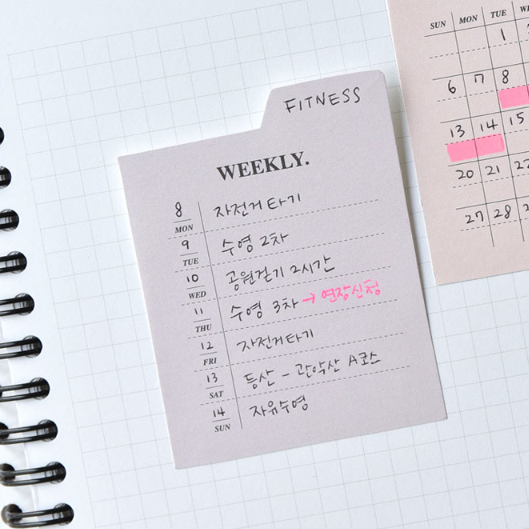 FITNESS
WEEKLY.
8 MON 자전거타기
9 TUE 수영 2차
10 WED 공원걷기 2시간
11 THU 수영 3차 → 연장신청
12 FRI 자전거타기
13 SAT 등산 - 관악산 A코스
14 SUN 자유수영
SUN MON TUE
1
6 7 8
13 14 15
20 21 22
27 28